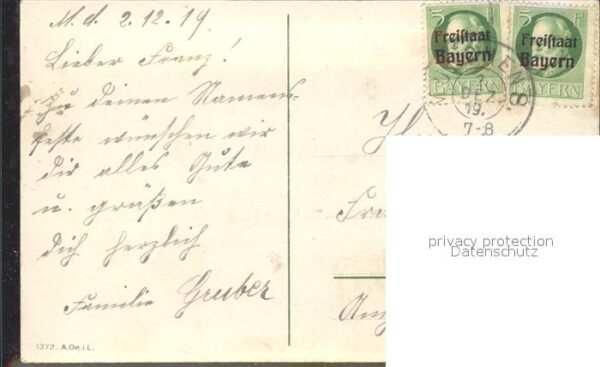 M. d. 2.12.19
Lieber Franz!
Zu deinen Namens-
feste wünschen wir
dir alles Gute
u. grüßen
dich herzlich
Familie Gruber
1372. A.Ge.i.L.
5 5
Freistaat
Bayern
BAYERN
5 5
Freistaat
Bayern
BAYERN
DEZ
19.
7-8
privacy protection
Datenschutz